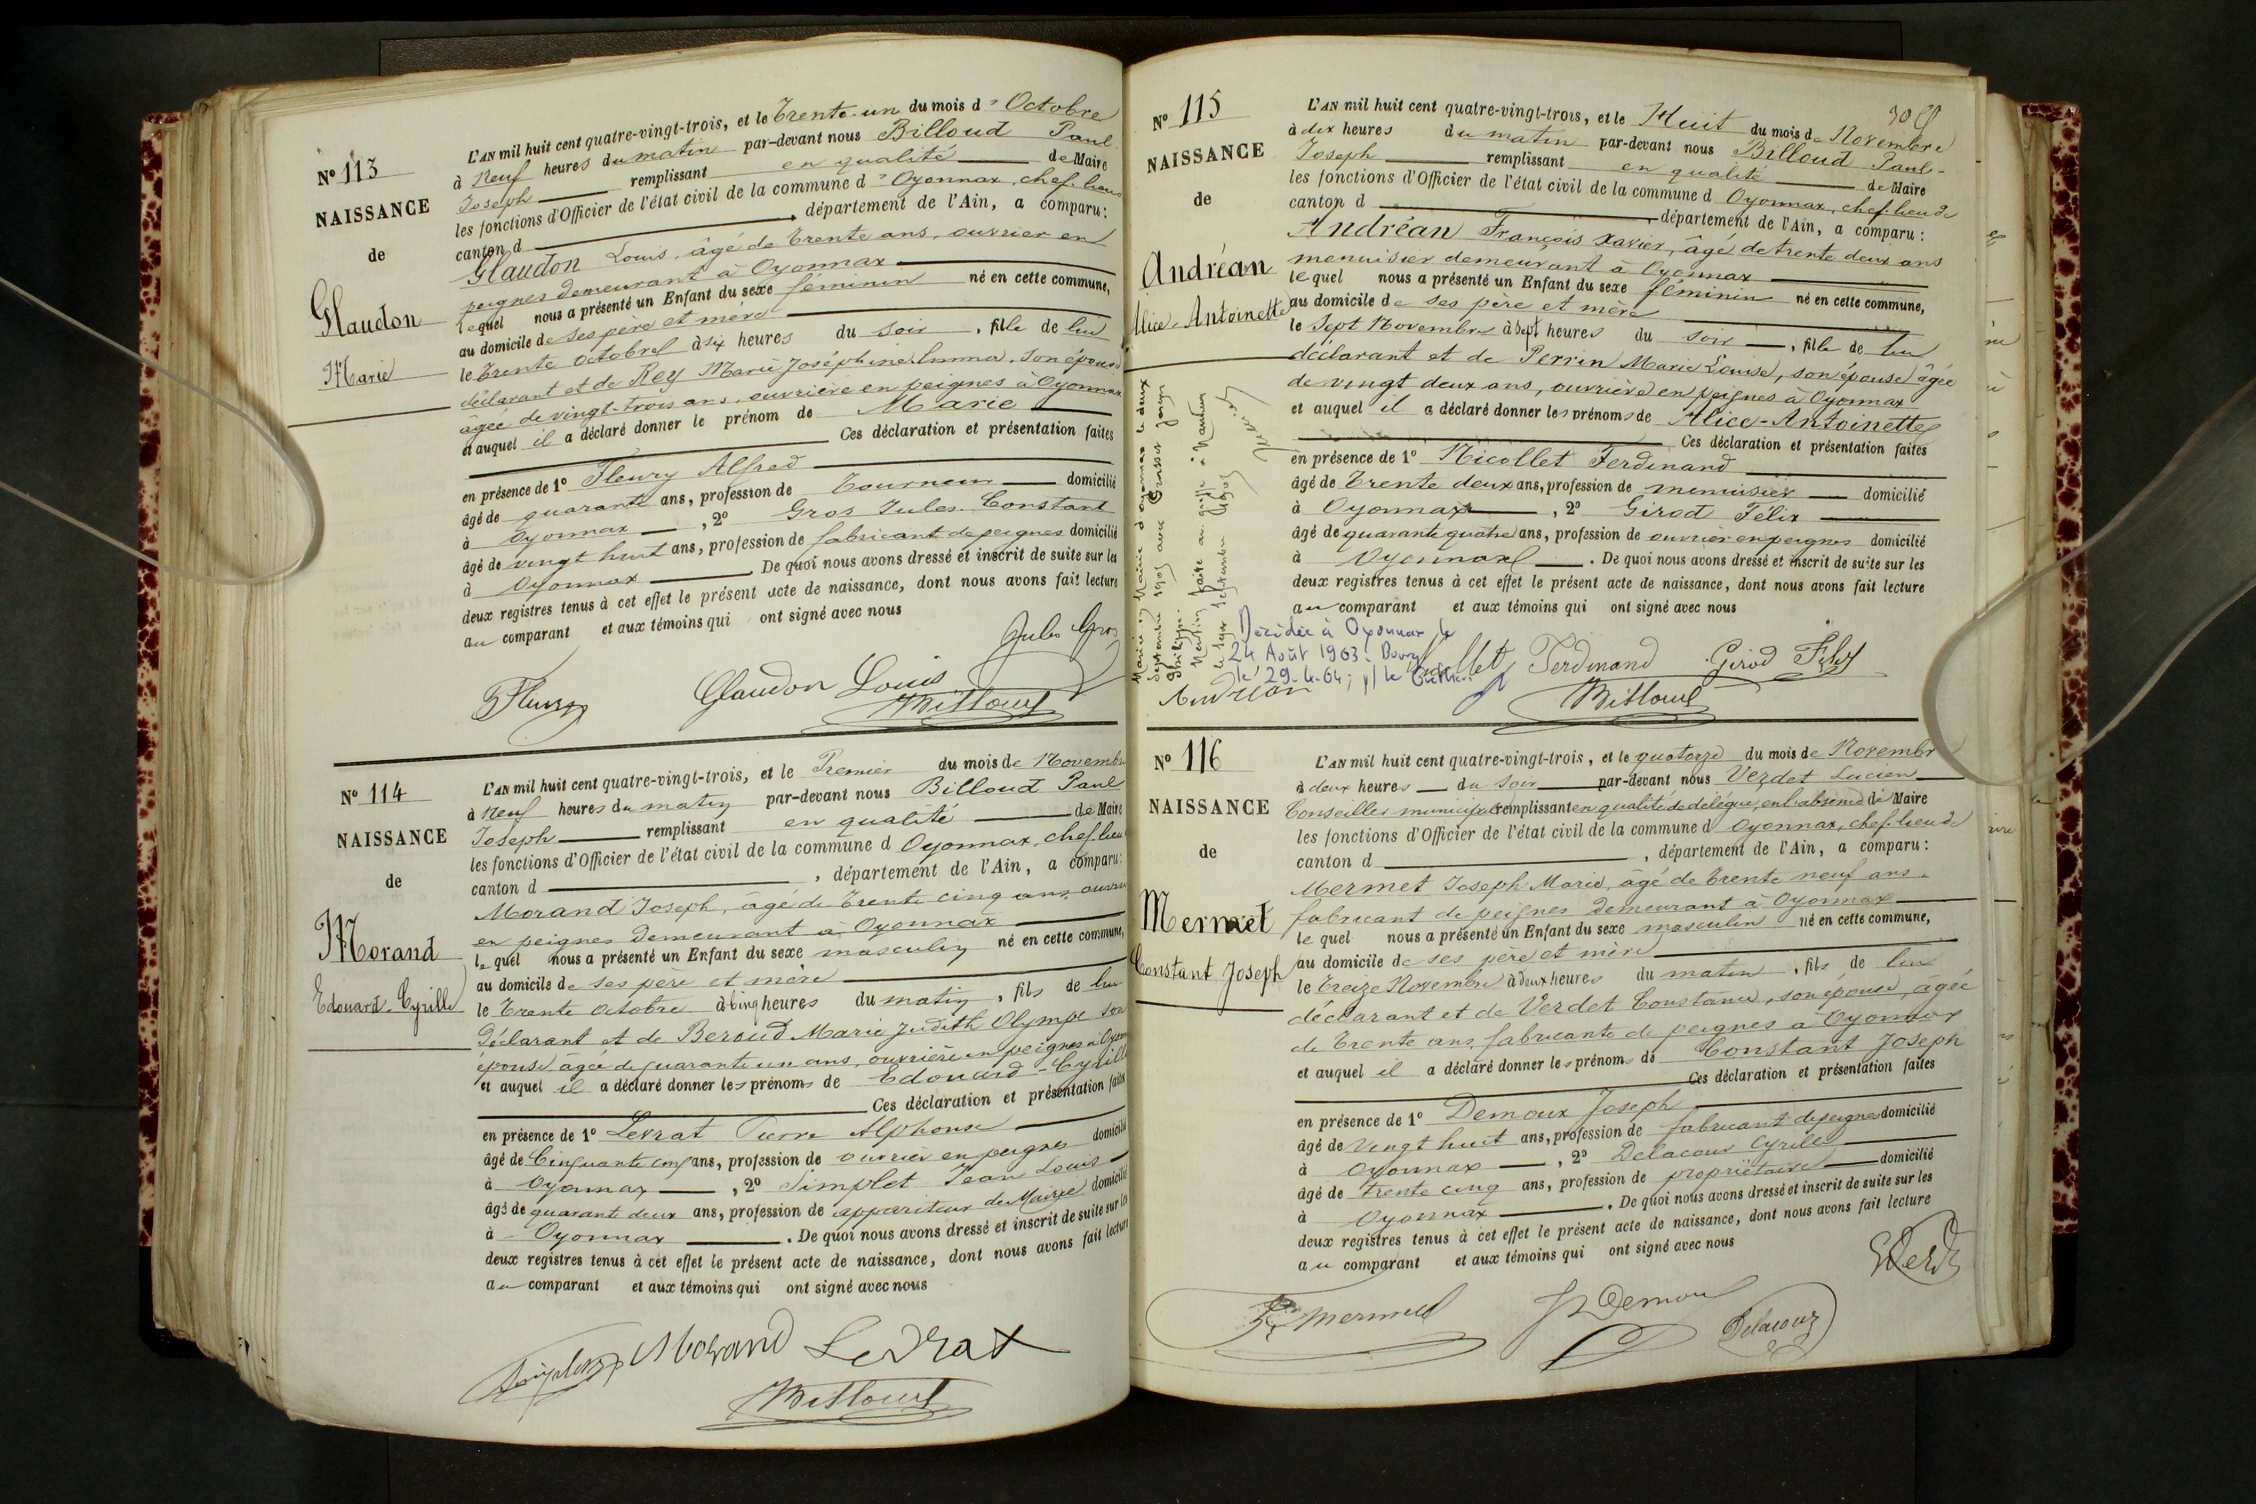 N° 113
NAISSANCE
de
Glaudon
Marie
L'AN mil huit cent quatre-vingt-trois, et le Trente-un du mois d'Octobre
à Neuf heures du matin par-devant nous Billoud Paul
Joseph remplissant en qualité de Maire
les fonctions d'Officier de l'état civil de la commune d'Oyonnax, chef-lieu
canton d , département de l'Ain, a comparu:
Glaudon Louis, âgé de trente ans, ouvrier en
peignes demeurant à Oyonnax
lequel nous a présenté un Enfant du sexe féminin né en cette commune,
au domicile de ses père et mère
le trente octobre à six heures du soir, fille de lui
déclarant et de Rey Marie Joséphine, son épouse
agée de vingt-trois ans, ouvrière en peignes à Oyonnax
et auquel il a déclaré donner le prénom de Marie
Ces déclaration et présentation faites
en présence de 1° Fleury Alfred
âgé de quarante ans, profession de Tourneur domicilié
à Oyonnax, 2° Gros Jules Constant
âgé de vingt huit ans, profession de fabricant de peignes domicilié
à Oyonnax. De quoi nous avons dressé et inscrit de suite sur les
deux registres tenus à cet effet le présent acte de naissance, dont nous avons fait lecture
au comparant et aux témoins qui ont signé avec nous
Jules Gros
Fleury Glaudon Louis
Billoud
N° 114
NAISSANCE
de
Morand
Edouard-Cyrille
L'AN mil huit cent quatre-vingt-trois, et le Premier du mois de Novembre
à Neuf heures du matin par-devant nous Billoud Paul
Joseph remplissant en qualité de Maire
les fonctions d'Officier de l'état civil de la commune d Oyonnax, chef-lieu
canton d , département de l'Ain, a comparu:
Morand Joseph, âgé de trente cinq ans, ouvrier
en peignes demeurant à Oyonnax
lequel nous a présenté un Enfant du sexe masculin né en cette commune,
au domicile de ses père et mère
le Trente octobre à Cinq heures du matin, fils de lui
Déclarant et de Beroud Marie Judith Olympe son
épouse âgée de quarante un ans, ouvrière en peignes à Oyonnax
et auquel il a déclaré donner les prénoms de Edouard-Cyrille
Ces déclaration et présentation faites
en présence de 1° Levrat Pierre Alphonse
âgé de Cinquante cinq ans, profession de ouvrier en peignes domicilié
à Oyonnax, 2° Simplet Jean Louis
âgé de quarante deux ans, profession de appariteur de Mairie domicilié
à Oyonnax. De quoi nous avons dressé et inscrit de suite sur les
deux registres tenus à cet effet le présent acte de naissance, dont nous avons fait lecture
au comparant et aux témoins qui ont signé avec nous
Simplet Morand Levrat
Billoud
N° 115
NAISSANCE
de
Andréan
Alice-Antoinette
L'AN mil huit cent quatre-vingt-trois, et le Huit du mois de Novembre
à dix heures du matin par-devant nous Billoud Paul-
Joseph remplissant en qualité de Maire
les fonctions d'Officier de l'état civil de la commune d Oyonnax, chef-lieu de
canton d , département de l'Ain, a comparu:
Andréan François Xavier, âgé de trente deux ans
menuisier demeurant à Oyonnax
lequel nous a présenté un Enfant du sexe féminin né en cette commune,
au domicile de ses père et mère
le Sept Novembre à sept heures du soir, fille de lui
déclarant et de Perrin Marie Louise, son épouse âgée
de vingt deux ans, ouvrière en peignes à Oyonnax
et auquel il a déclaré donner les prénoms de Alice-Antoinette
Ces déclaration et présentation faites
en présence de 1° Nicollet Ferdinand
âgé de Trente deux ans, profession de menuisier domicilié
à Oyonnax, 2° Girod Félix
âgé de quarante quatre ans, profession de ouvrier en peignes domicilié
à Oyonnax. De quoi nous avons dressé et inscrit de suite sur les
deux registres tenus à cet effet le présent acte de naissance, dont nous avons fait lecture
au comparant et aux témoins qui ont signé avec nous
Mariée Mairie d'Oyonnax le deux
septembre 1905 avec Grosset
Philippe.
Mention faite au greffe à Nantua
le sept septembre 1905
Décédée à Oyonnax le
24 Août 1963. Bourg
le 29.4.64; p/ le Greffier
Nicollet Ferdinand Girod Félix
Andréan
Billoud
N° 116
NAISSANCE
de
Mermet
Constant Joseph
L'AN mil huit cent quatre-vingt-trois, et le quatorze du mois de Novembre
à deux heures du soir par-devant nous Verdet Lucien
Conseiller municipal remplissant en qualité de délégué, en l'absence de Maire
les fonctions d'Officier de l'état civil de la commune d Oyonnax, chef-lieu de
canton d , département de l'Ain, a comparu:
Mermet Joseph Marie, âgé de trente neuf ans
fabricant de peignes demeurant à Oyonnax
lequel nous a présenté un Enfant du sexe masculin né en cette commune,
au domicile de ses père et mère
le treize Novembre à deux heures du matin, fils de lui
déclarant et de Verdet Constance, son épouse, âgée
de trente ans, fabricante de peignes à Oyonnax
et auquel il a déclaré donner les prénoms de Constant Joseph
Ces déclaration et présentation faites
en présence de 1° Demoux Joseph
âgé de Vingt huit ans, profession de fabricant de peignes domicilié
à Oyonnax, 2° Delacour Cyrille
âgé de trente cinq ans, profession de propriétaire domicilié
à Oyonnax. De quoi nous avons dressé et inscrit de suite sur les
deux registres tenus à cet effet le présent acte de naissance, dont nous avons fait lecture
au comparant et aux témoins qui ont signé avec nous
Verdet
Mermet Demoux Delacour